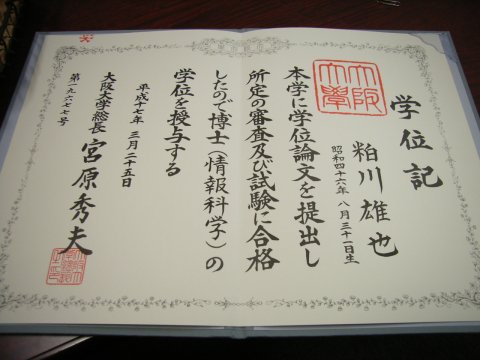 学位記
粕川雄也
昭和四十六年 八月三十一日生
大阪大学
本学に学位論文を提出し
所定の審査及び試験に合格
したので博士(情報科学)の
学位を授与する
平成十七年 三月二十五日
大阪大学総長 宮原秀夫
第一九六七七号